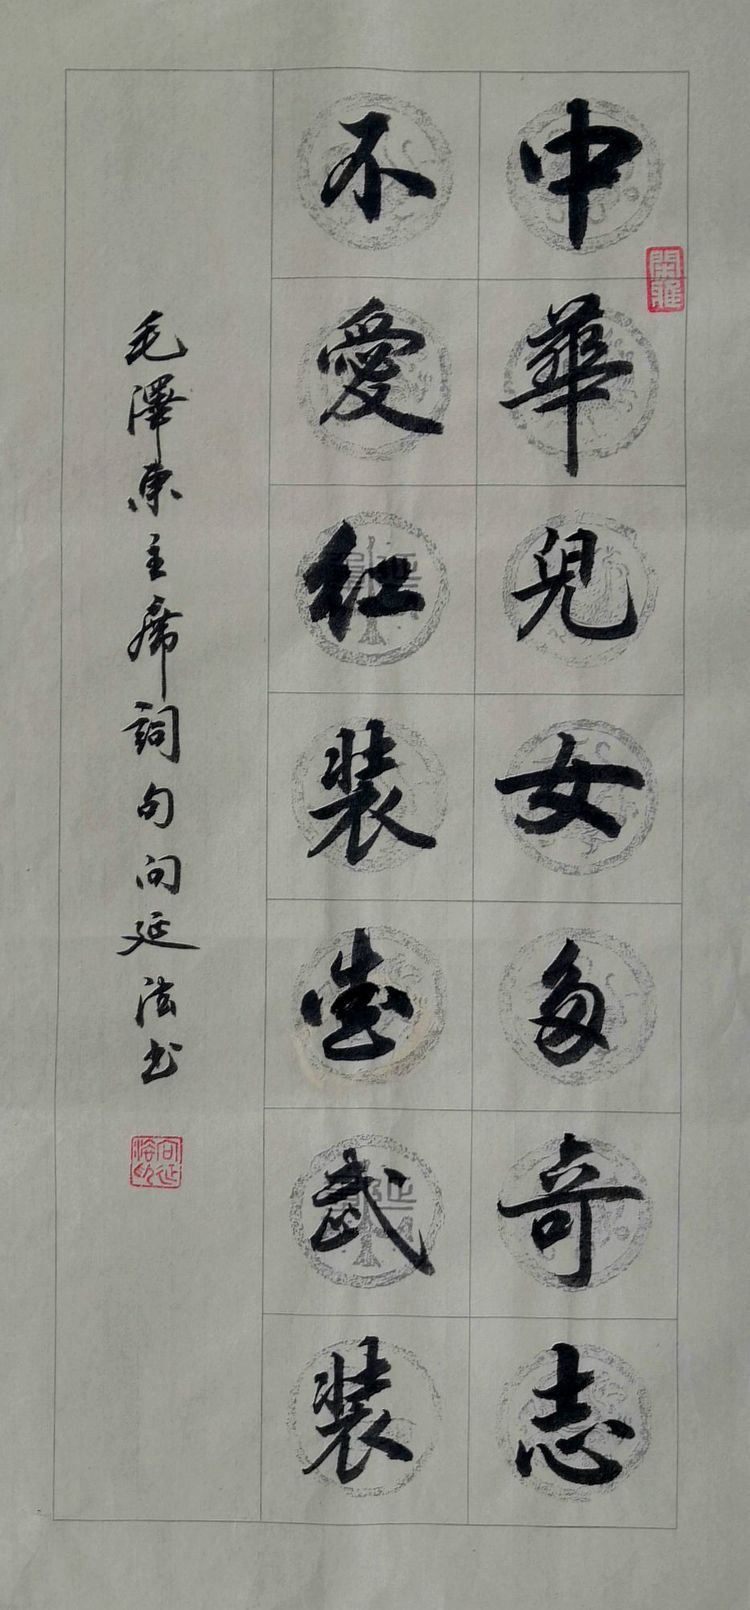 閑雅
中華兒女多奇志
不愛紅裝愛武裝
毛澤東主席詞句向延法书